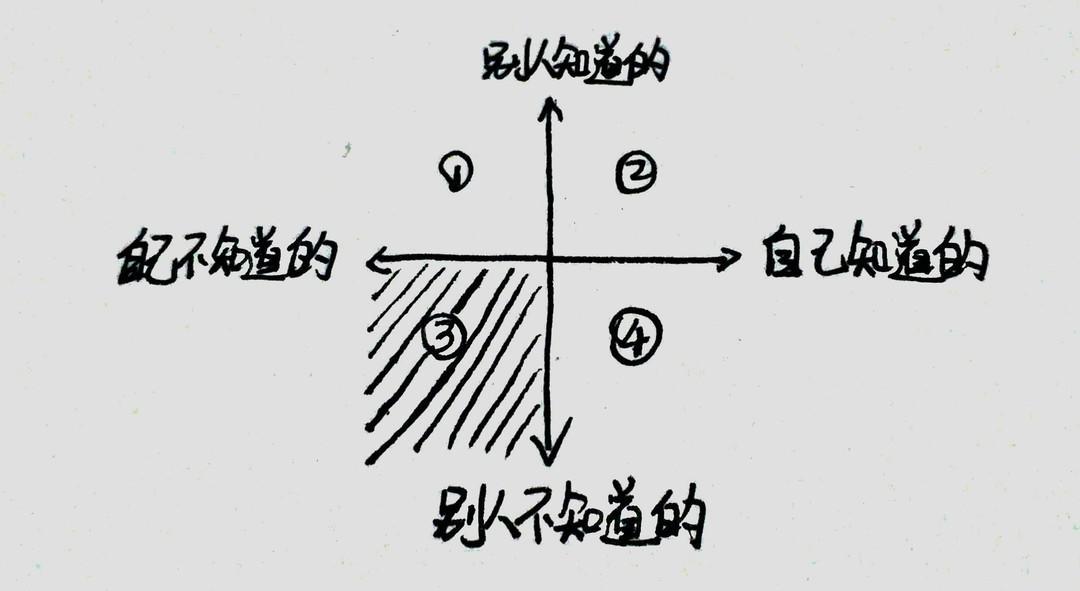 别人知道的
① ②
自己不知道的 自己知道的
③ ④
别人不知道的